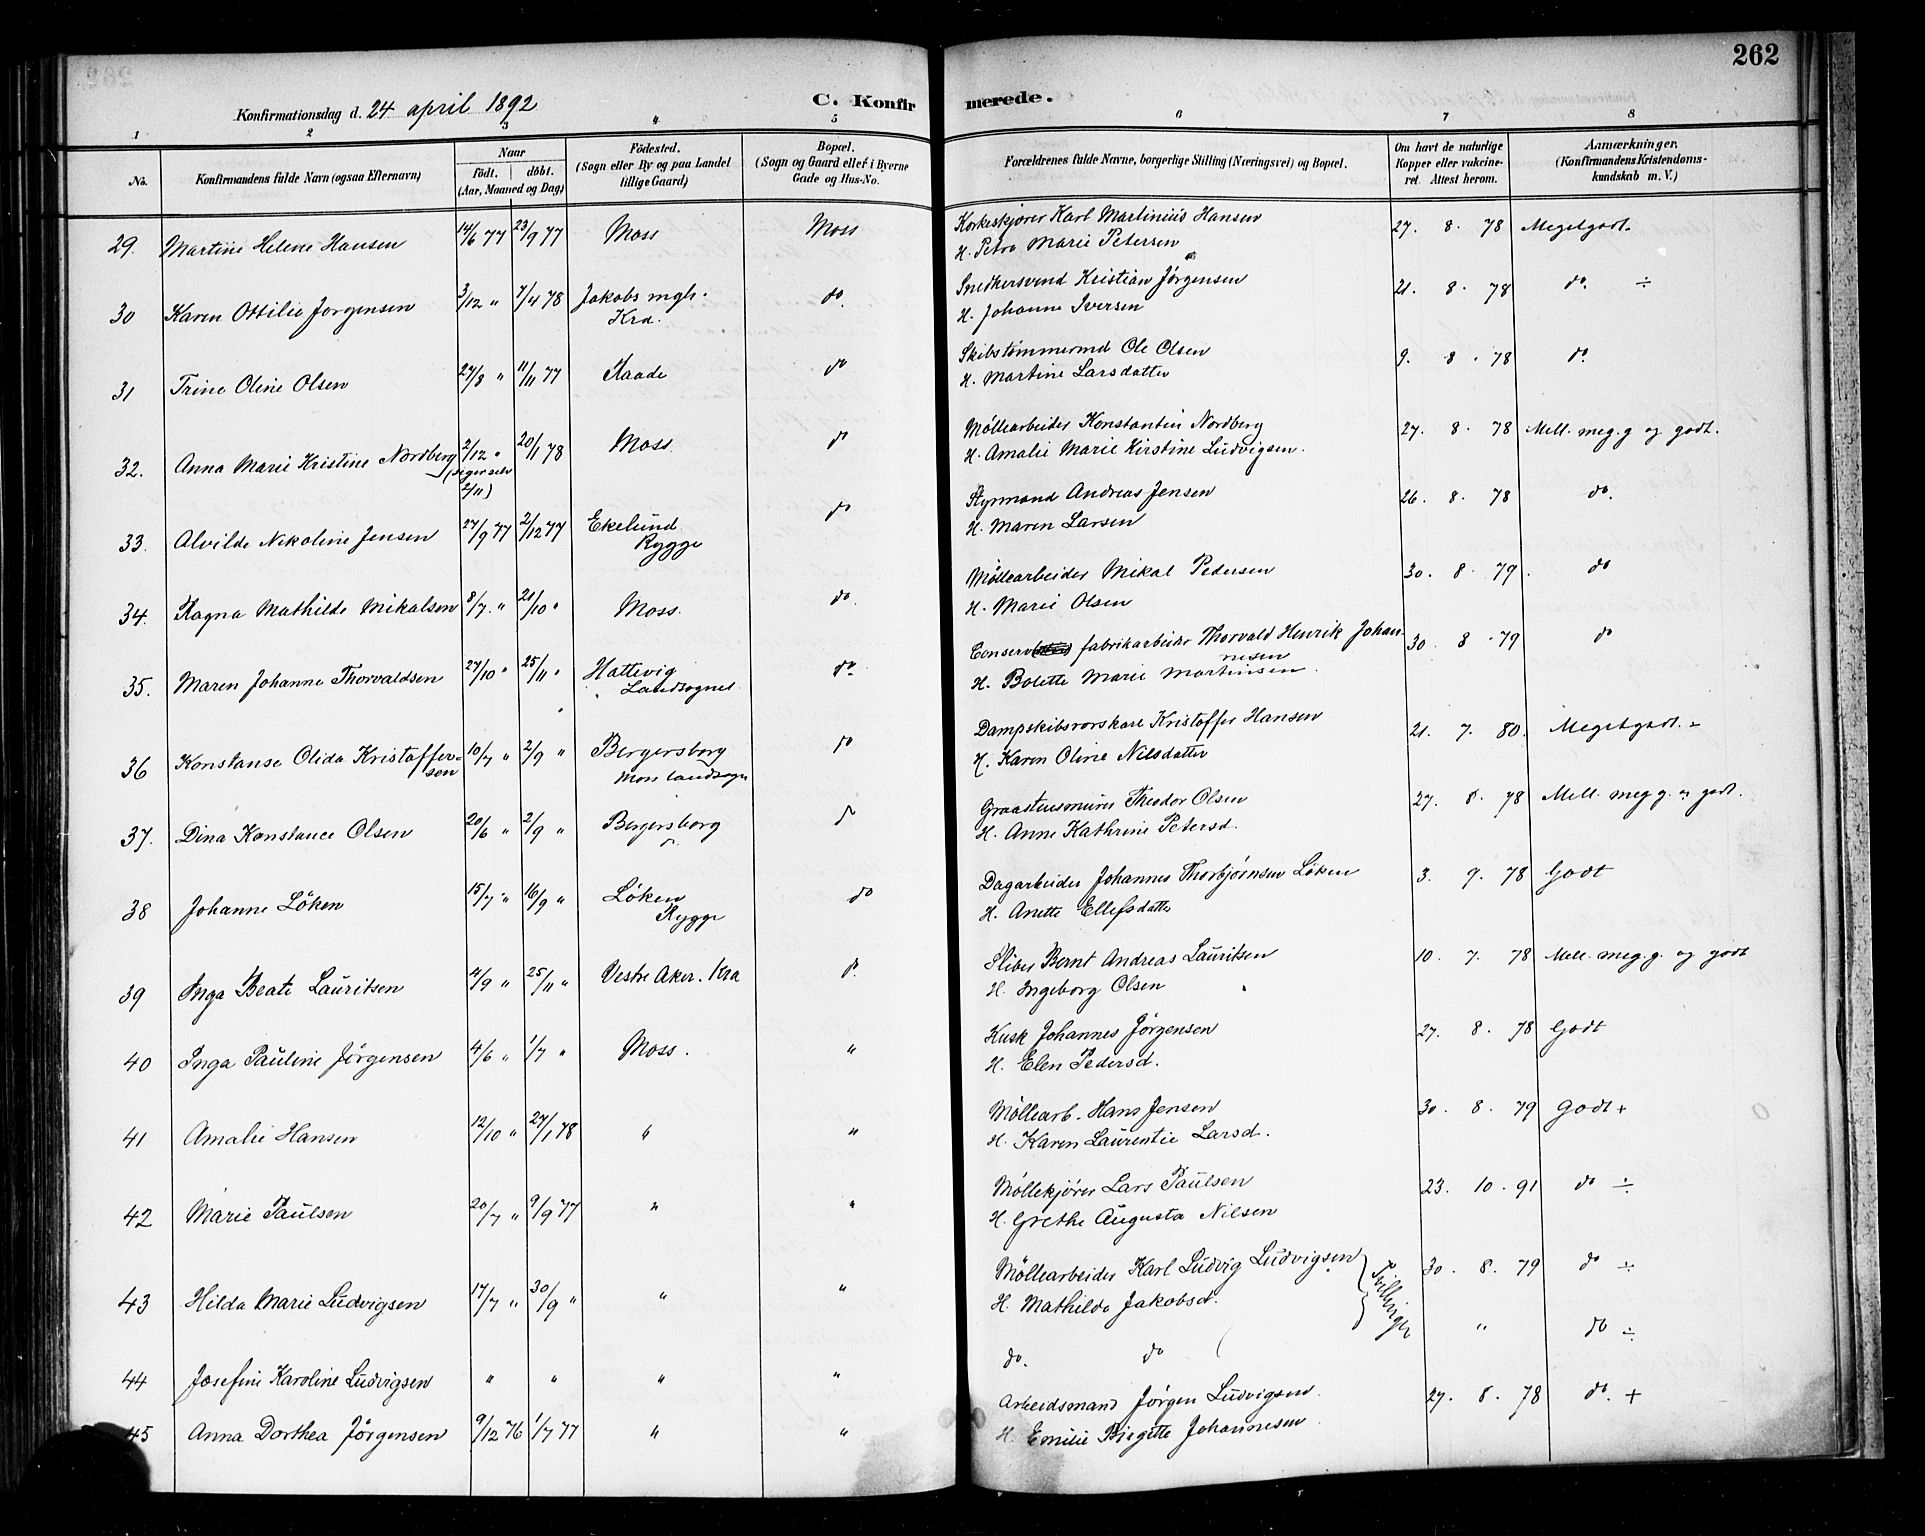 262
Konfirmationsdag d. 24 april 1892
C. Konfirmerede.
1 2 3 4 5 6 7 8
No. Konfirmandens fulde Navn (ogsaa Efternavn) Naar født. døbt. (Aar, Maaned og Dag) Fødested. (Sogn eller By og paa Landet tillige Gaard) Bopæl. (Sogn og Gaard eller i Byerne Gade og Hus-No. Forældrenes fulde Navne, borgerlige Stilling (Næringsvei) og Bopæl. Om havt de naturlige Kopper eller vakcineret. Attest herom. Anmærkninger. (Konfirmandens Kristendomskundskab m. V.)
29. Martine Helene Hansen 14/6 77 23/9 77 Moss Moss Korkeskjører Karl Martinius Hansen 27. 8. 78 Megetgodt.
H. Petra Marie Petersen
30 Karen Ottilie Jørgensen 3/12 " 7/4 78 Jakobs mgh. Kra. do. Snedkersvend Kristian Jørgensen 21. 8. 78 do. ÷
H. Johanne Iversen
31 Trine Oline Olsen 27/8 " 11/11 77 Raade do Skibstømmermd Ole Olsen 9. 8. 78 do.
H. Martine Larsdatter
32. Anna Marie Kristine Nordberg 2/12 " (siger selv 2/11) 20/1 78 Moss do Møllearbeider Konstantin Nordberg 27. 8. 78 Mell. meg. g og godt.
H. Amalie Marie Kirstine Ludvigsen.
33. Alvilde Nikoline Jensen 27/9 77 2/12 77 Ekelund Rygge do Styrmand Andreas Jensen 26. 8. 78 do.
H. Maren Larsen
34. Ragna Mathilde Mikalsen 8/7. " 21/10 " Moss. do. Møllearbeider Mikal Pedersen 30. 8. 79. do
H. Marie Olsen
35. Maren Johanne Thorvaldsen 27/10 " 25/11 " Hattevig Landsognet do. Conserv fabrikarbeider Thorvald Henrik Johannesen 30. 8. 79 do
H. Bolette Marie Martinsen.
36 Konstanse Olida Kristoffersen 10/7 " 2/9 " Bergersborg Moss landsogn do Dampskibsrorskarl Kristoffer Hansen 21. 7. 80. Megetgodt. ÷
H. Karen Oline Nilsdatter
37. Dina Konstance Olsen 20/6 " 2/9 " Bergersborg do. do Graastensmurer Theodor Olsen 27. 8. 78 Mell. meg g. og godt.
H. Anne Kathrine Petersd.
38 Johanne Løken 15/7 " 16/9 " Løken Rygge do Dagarbeider Johannes Thorbjørnsen Løken 3. 9. 78 Godt
H. Anette Ellefsdatter
39 Inga Beate Lauritsen 4/9 " 25/11 " Vestre Aker. Kra do. Sliber Bernt Andreas Lauritsen 10. 7. 78 Mell. meg. g. og godt
H. Ingeborg Olsen
40 Inga Pauline Jørgensen 4/6 " 1/7 " Moss. " Kusk Johannes Jørgensen 27. 8. 78 Godt
H. Elen Pedersd.
41 Amalie Hansen 12/10 " 27/1 78 " " Møllearb. Hans Jensen 30. 8. 79 Godt +
H. Karen Laurentie Larsd.
42 Marie Paulsen 20/7 " 9/9 77 " " Møllekjører Lars Paulsen 23. 10. 91 do ÷
H. Grethe Augusta Nilsen
43 Hilda Marie Ludvigsen 17/7 " 30/9 " " " Møllearbeider Karl Ludvig Ludvigsen 30. 8. 79 do ÷
H. Mathilde Jakobsd. Tvillinger
44 Josefine Karoline Ludvigsen " " " " do. do " do ÷
45 Anna Dorthea Jørgensen 9/12 76 1/7 77 " " Arbeidsmand Jørgen Ludvigsen. 27. 8. 78 do. +
H. Emilie Birgitte Johannesen.